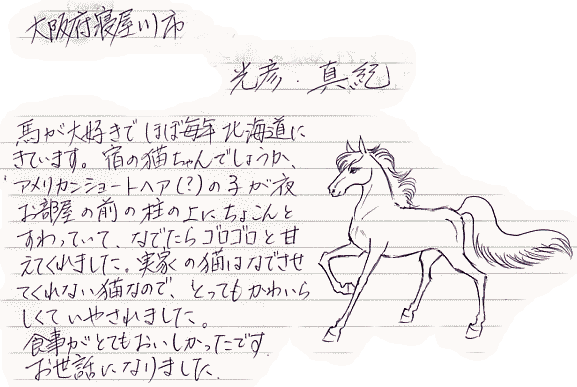 大阪府寝屋川市
光彦・真紀
馬が大好きでほぼ毎年北海道に
きています。宿の猫ちゃんでしょうか、
アメリカンショートヘア(?)の子が夜
お部屋の前の柱の上にちょこんと
すわっていて、なでたらゴロゴロと甘
えてくれました。実家の猫はなでさせ
てくれない猫なので、とってもかわいら
しくていやされました。
食事がとてもおいしかったです
お世話になりました